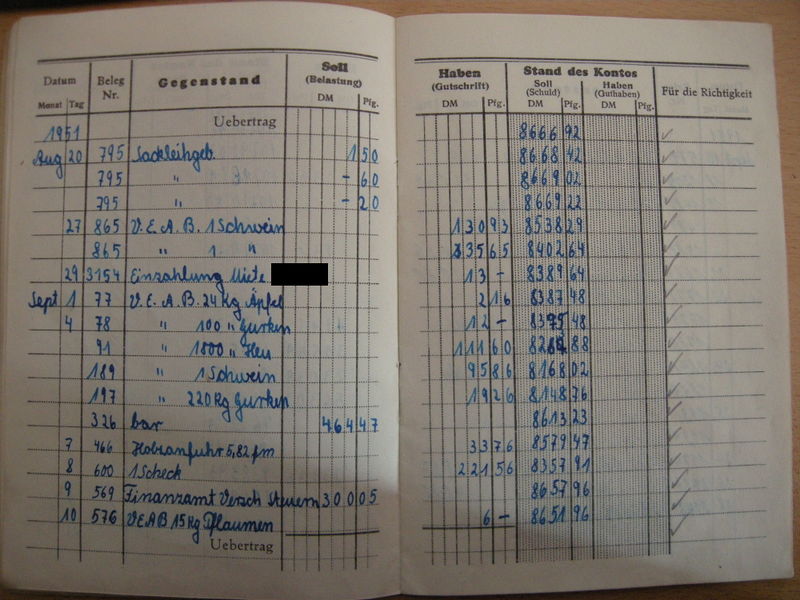 Soll
(Belastung)
Datum Beleg Nr. Gegenstand
Monat Tag DM Pfg.
Uebertrag
1951
Aug 20 795 Sackleihgeb. 1 50
795 " - 60
795 " - 20
27 865 V.E.A.B. 1 Schwein
865 " 1 "
29 3154 Einzahlung Miete
Sept 1 77 V.E.A.B. 24 Kg Äpfel
4 78 " 100 " Gurken
91 " 1800 " Heu
189 " 1 Schwein
197 " 220 Kg Gurken
326 bar 464 47
7 466 Holzanfuhr 5,82 fm
8 600 1 Scheck
9 569 Finanzamt Versch Steuern 300 05
10 576 VEAB 15 Kg Pflaumen
Uebertrag
Haben
(Gutschrift)
Stand des Kontos
Soll (Schuld) Haben (Guthaben) Für die Richtigkeit
DM Pfg. DM Pfg. DM Pfg.
8666 92
8668 42
8669 02
8669 22
130 93 8538 29
135 65 8402 64
13 - 8389 64
2 16 8387 48
12 - 8375 48
111 60 8263 88
95 86 8168 02
19 26 8148 76
8613 23
33 76 8579 47
221 56 8357 91
8657 96
6 - 8651 96